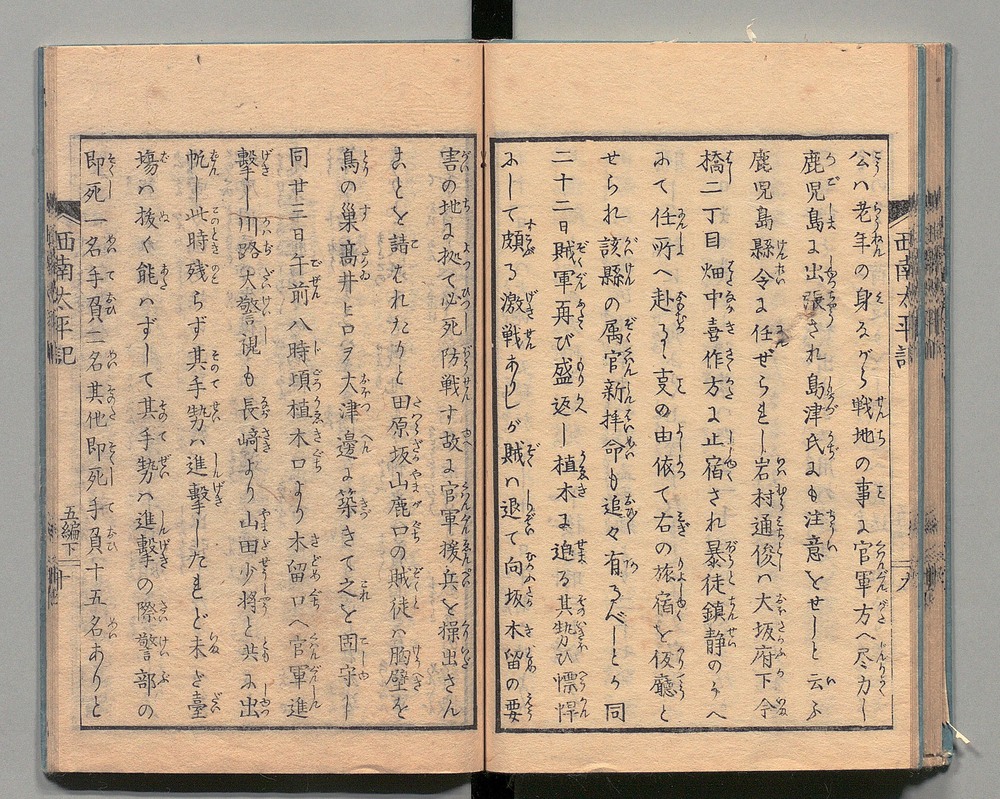 公ハ老年の身ながら戦地の事ゆゑ官軍方へ尽力し
鹿児島に出張され島津氏にも注意をせしと云ふ
鹿児島縣令に任ぜられし岩村通俊ハ大坂府下今
橋二丁目畑中喜作方に止宿され暴徒鎮静のうへ
にて任所へ赴るゝ㕝の由依て右の旅宿を仮廳と
せられ該縣の属官新拝命も追々有るべしとか同
二十二日賊軍再び盛返し植木に迫る其勢ひ慓悍
にして頗る激戦ありしが賊ハ退て向坂木留の要
西南太平記
九
害の地に拠て必死防戦す故に官軍援兵を操出さん
ことを請はれたりと田原坂山鹿口の賊徒ハ胸壁を
鳥の巣高井ヒロヲ大津邊に築きて之を固守し
同廿三日午前八時頃植木口より木留口へ官軍進
撃し川路大警視も長﨑より山田少将と共に出
帆し此時残らず其手勢ハ進撃したれど未だ臺
塲ハ抜く能ハずして其手勢ハ進撃の際警部の
即死一名手負二名其他即死手負十五名ありと
西南太平記
五編下
十